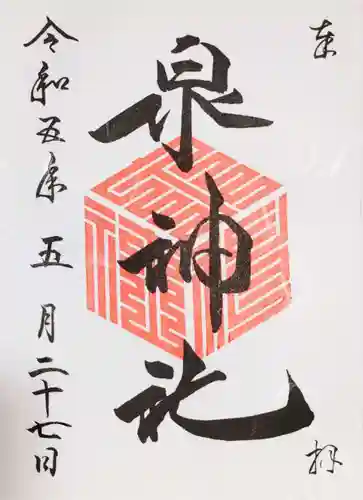 奉
拝
泉神社
令和五年五月二十七日